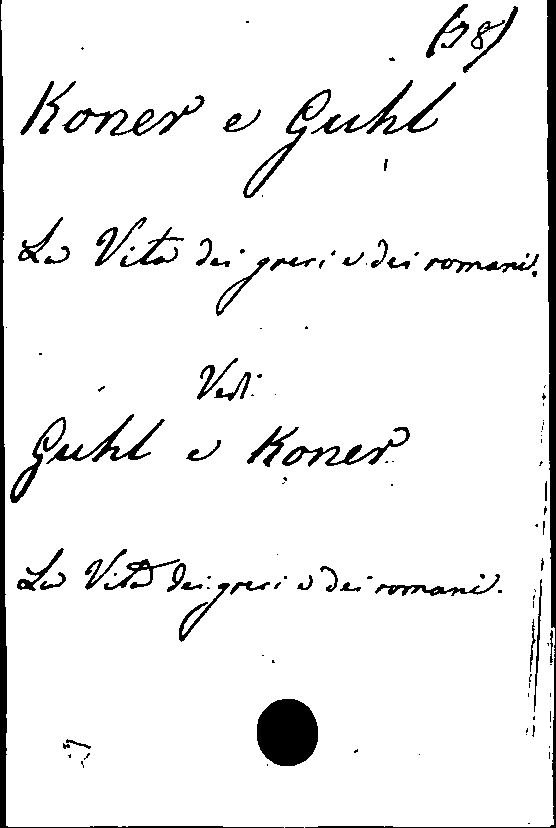 (58)
Koner e Guhl
La Vita dei greci e dei romani.
Vedi
Guhl e Koner
La Vita dei greci e dei romani.